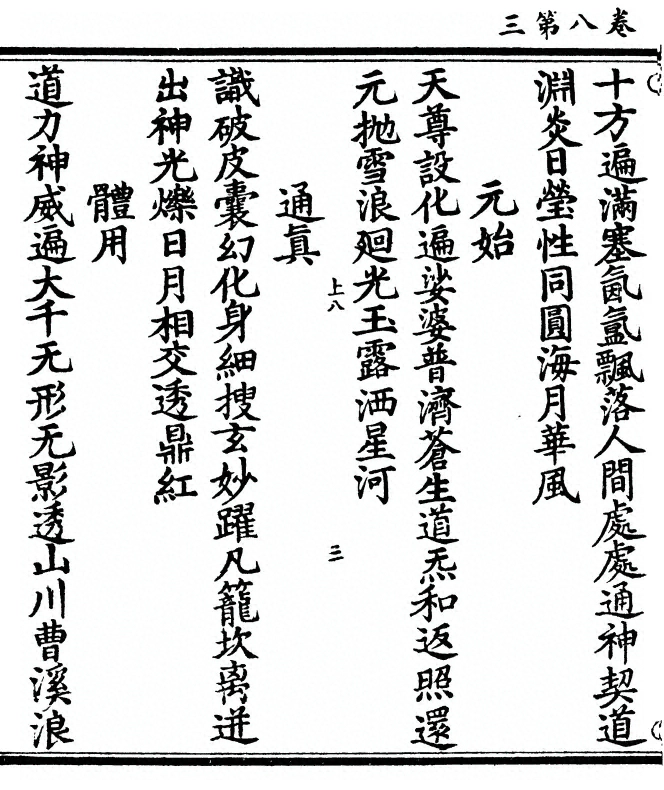 卷八第三
十方遍滿塞氤氳飄落人間處處通神契道
淵炎日瑩性同圓海月華風
元始
天尊設化遍娑婆普濟蒼生道炁和返照還
元拋雪浪廻光玉露洒星河
上八
三
通眞
識破皮囊幻化身細搜玄妙躍凡籠坎离迸
出神光爍日月相交透鼎紅
體用
道力神威遍大千无形无影透山川曹溪浪